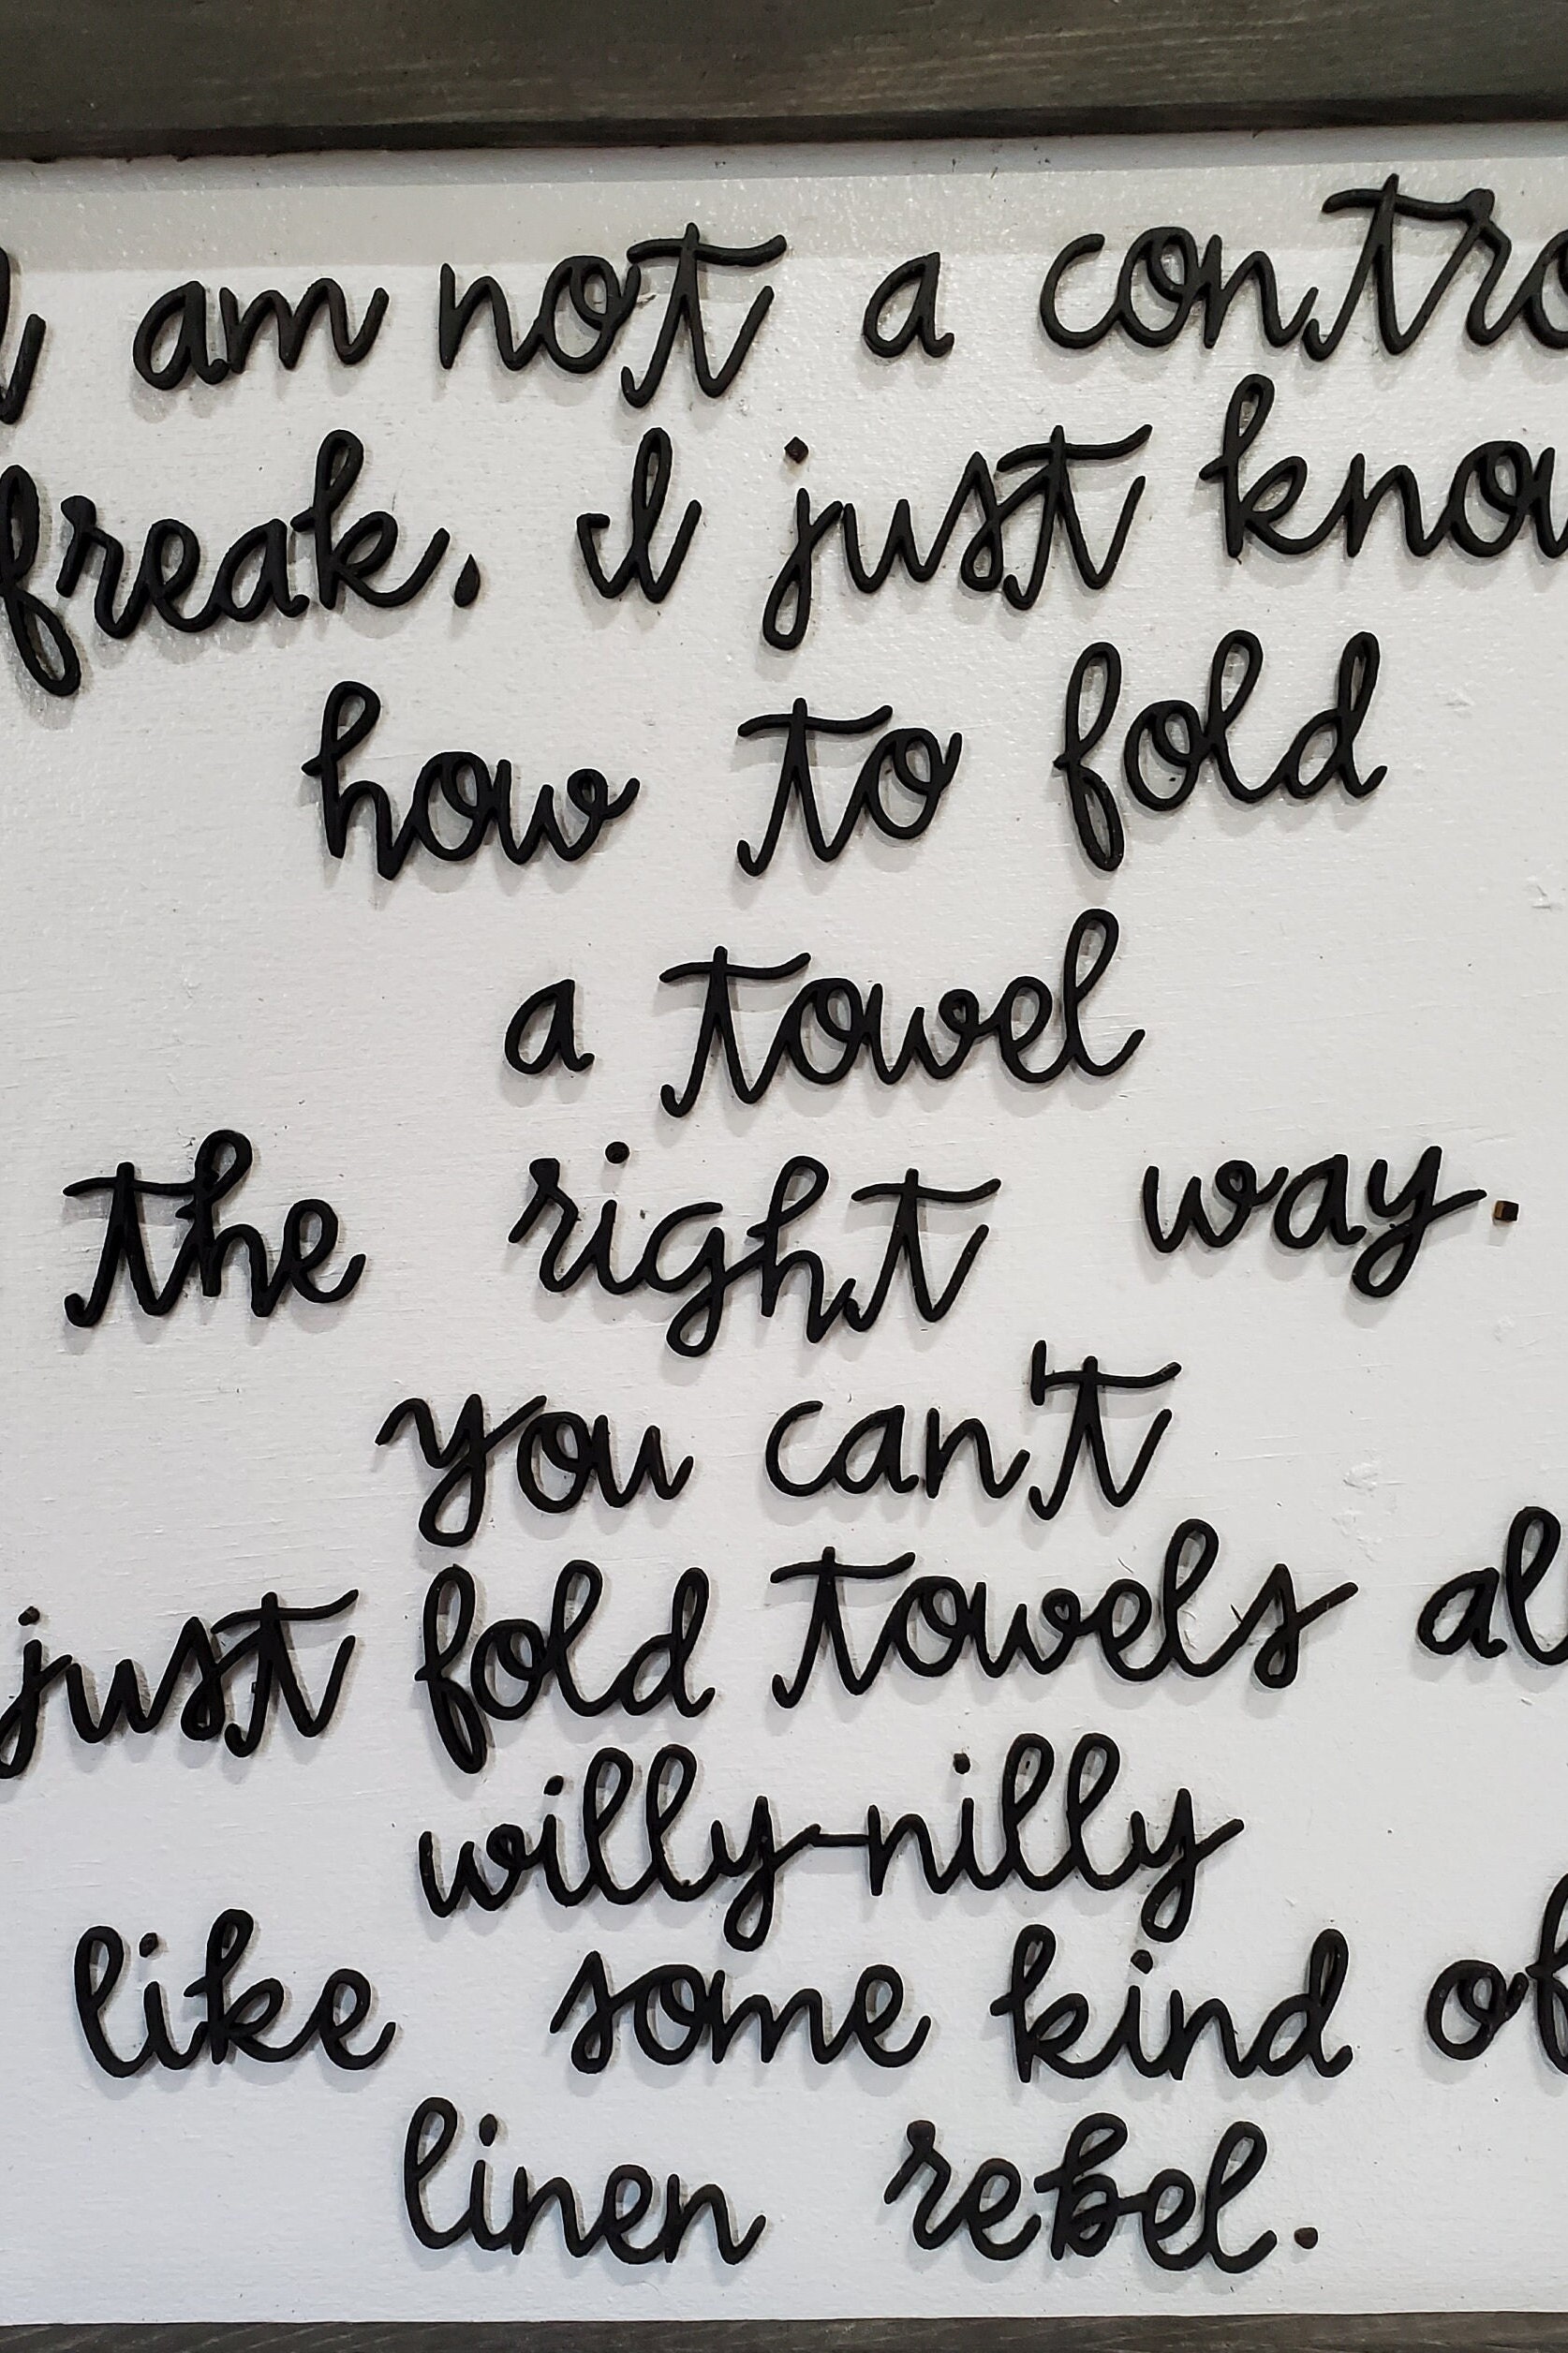 I am not a contro
freak, I just know
how to fold
a towel
the right way.
you can't
just fold towels al
willy-nilly
like some kind of
linen rebel.